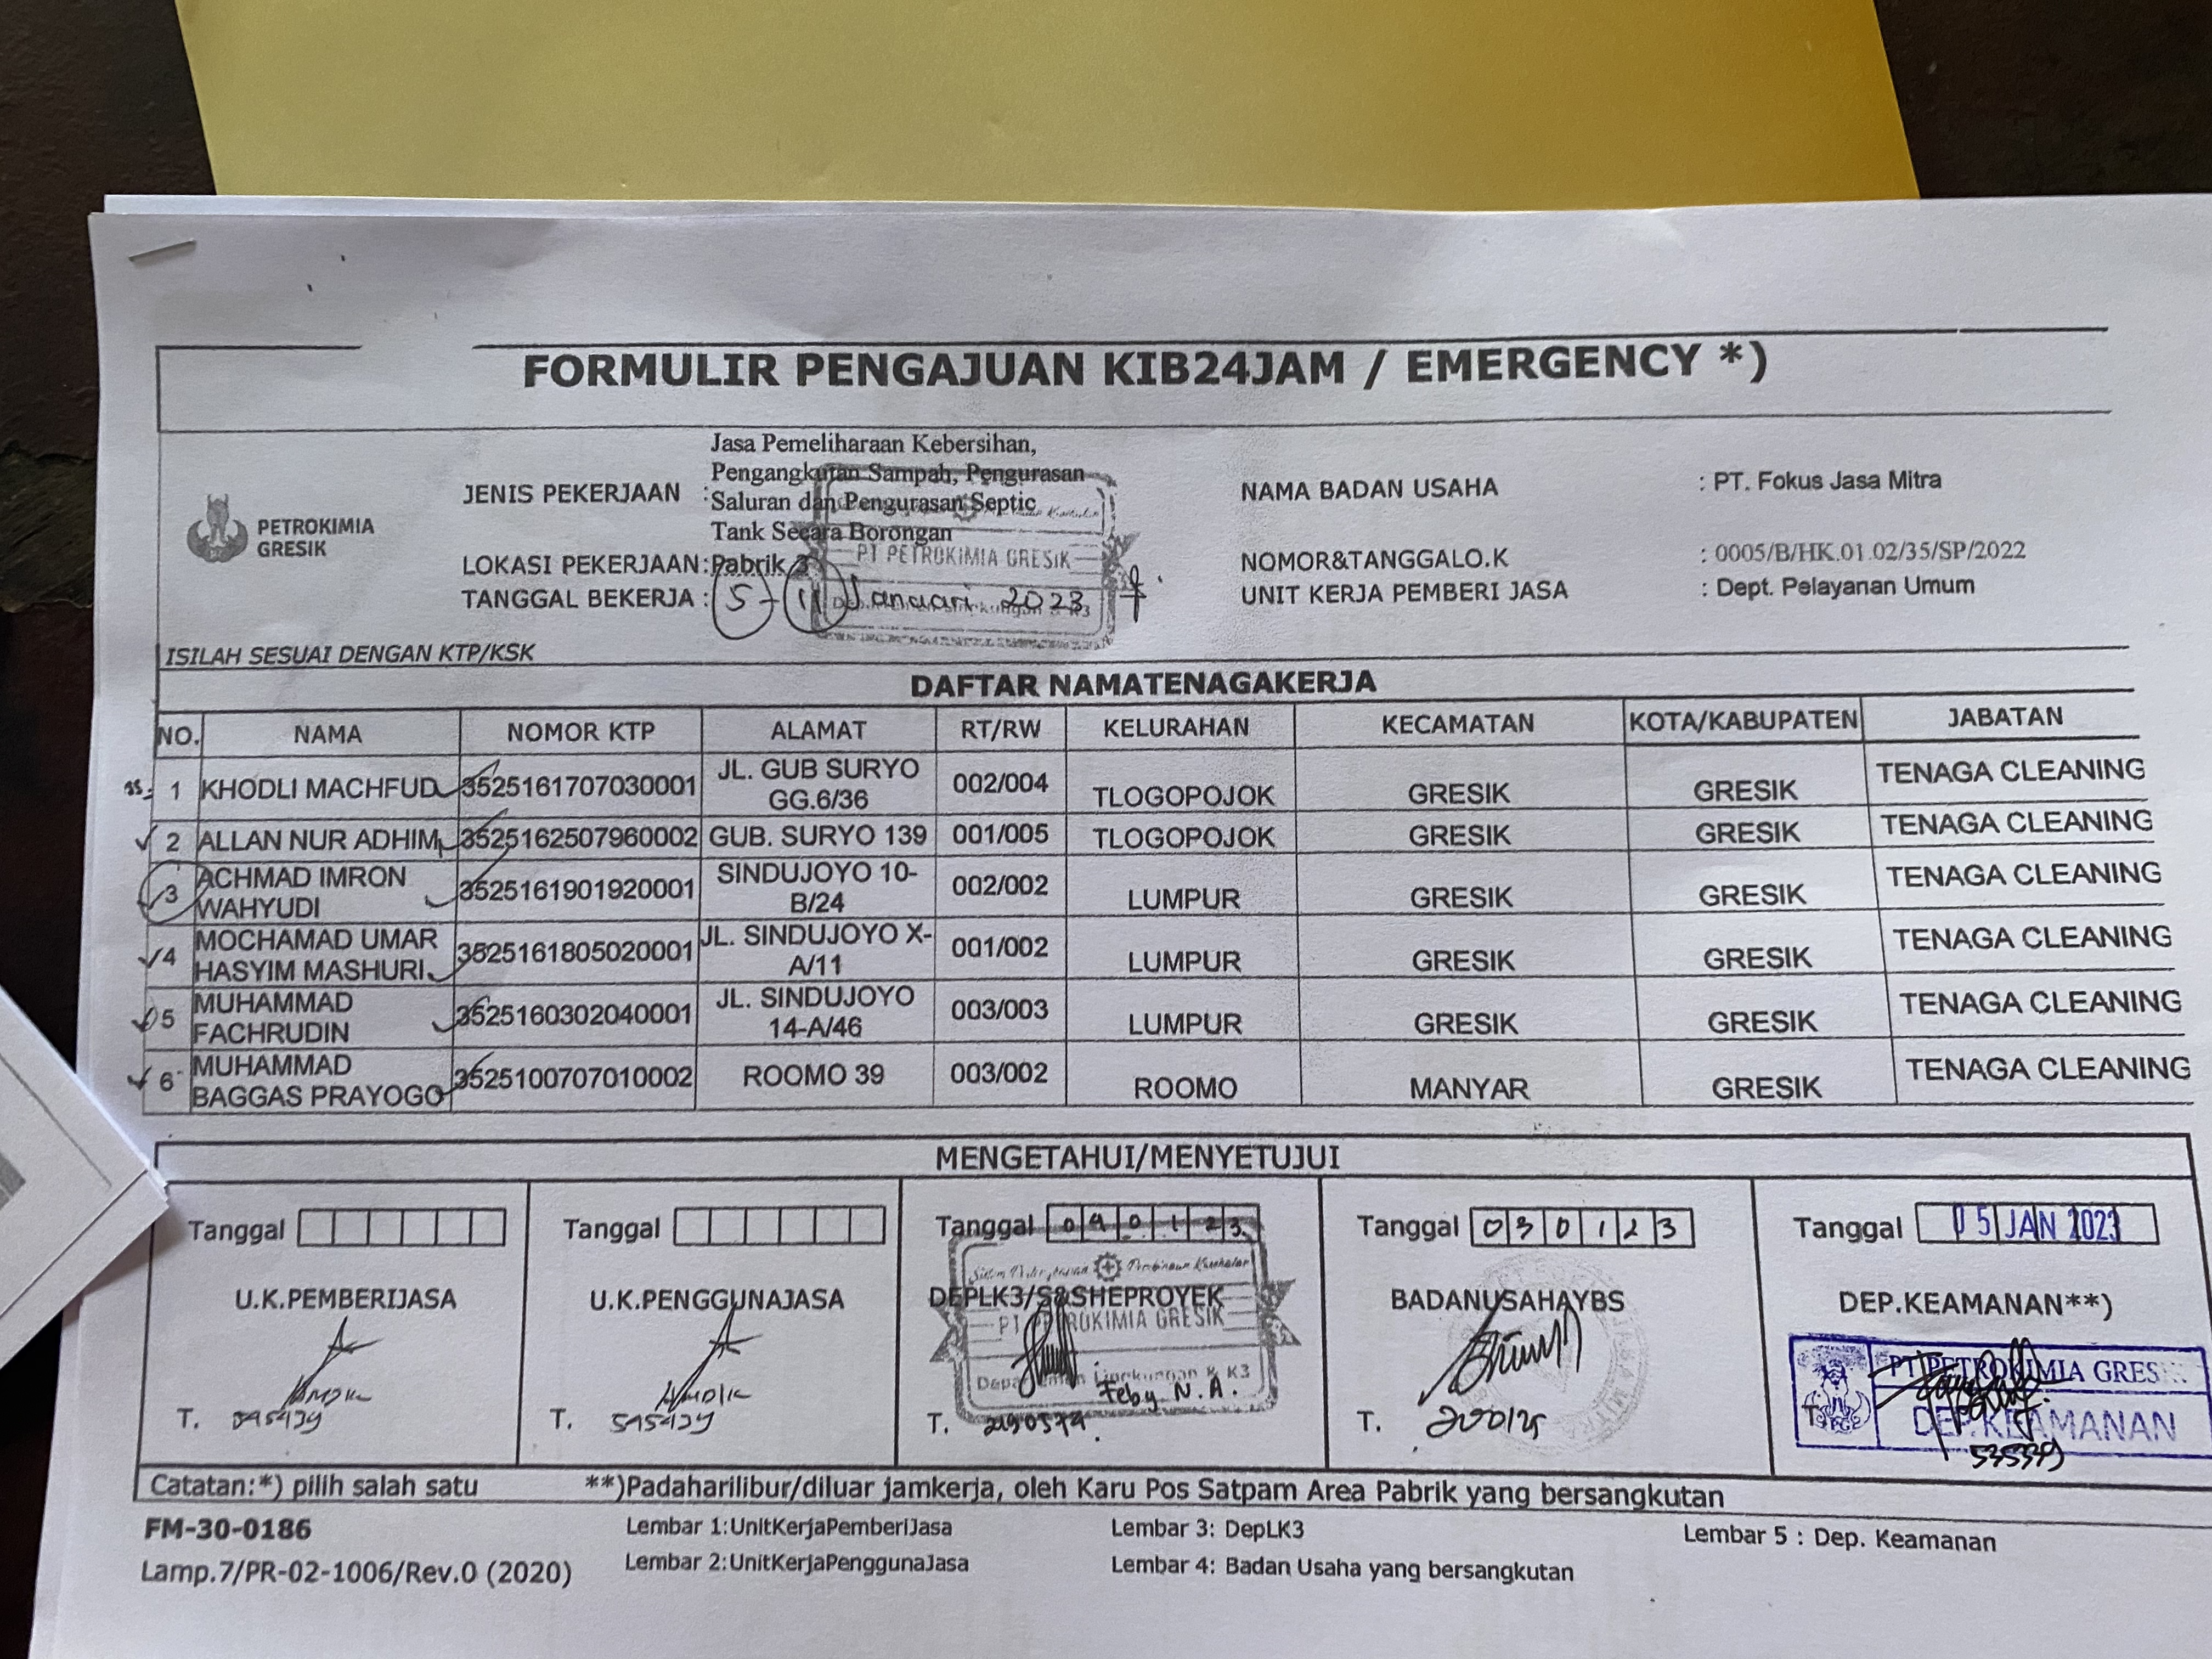 FORMULIR PENGAJUAN KIB24JAM / EMERGENCY *)
PETROKIMIA
GRESIK
Jasa Pemeliharaan Kebersihan,
Pengangkutan Sampah, Pengurasan
JENIS PEKERJAAN : Saluran dan Pengurasan Septic
Tank Secara Borongan
LOKASI PEKERJAAN: Pabrik 3
TANGGAL BEKERJA : 5 - 11 Januari 2023
NAMA BADAN USAHA : PT. Fokus Jasa Mitra
NOMOR&TANGGALO.K : 0005/B/HK.01.02/35/SP/2022
UNIT KERJA PEMBERI JASA : Dept. Pelayanan Umum
PT PETROKIMIA GRESIK
ISILAH SESUAI DENGAN KTP/KSK
DAFTAR NAMATENAGAKERJA
NO. NAMA NOMOR KTP ALAMAT RT/RW KELURAHAN KECAMATAN KOTA/KABUPATEN JABATAN
1 KHODLI MACHFUD 3525161707030001 JL. GUB SURYO GG.6/36 002/004 TLOGOPOJOK GRESIK GRESIK TENAGA CLEANING
2 ALLAN NUR ADHIM 3525162507960002 GUB. SURYO 139 001/005 TLOGOPOJOK GRESIK GRESIK TENAGA CLEANING
3 ACHMAD IMRON WAHYUDI 3525161901920001 SINDUJOYO 10-B/24 002/002 LUMPUR GRESIK GRESIK TENAGA CLEANING
4 MOCHAMAD UMAR HASYIM MASHURI 3525161805020001 JL. SINDUJOYO X-A/11 001/002 LUMPUR GRESIK GRESIK TENAGA CLEANING
5 MUHAMMAD FACHRUDIN 3525160302040001 JL. SINDUJOYO 14-A/46 003/003 LUMPUR GRESIK GRESIK TENAGA CLEANING
6 MUHAMMAD BAGGAS PRAYOGO 3525100707010002 ROOMO 39 003/002 ROOMO MANYAR GRESIK TENAGA CLEANING
MENGETAHUI/MENYETUJUI
Tanggal
U.K.PEMBERIJASA
T.
Tanggal
U.K.PENGGUNAJASA
T.
Tanggal 04 01 23
DEPLK3/S&SHEPROYEK
PT PETROKIMIA GRESIK
Feby N.A.
T.
Tanggal 03 01 23
BADANUSAHAYBS
T.
Tanggal 05 JAN 2023
DEP.KEAMANAN**)
PT PETROKIMIA GRESIK
DEP. KEAMANAN
T.
Catatan:*) pilih salah satu **)Padaharilibur/diluar jamkerja, oleh Karu Pos Satpam Area Pabrik yang bersangkutan
FM-30-0186 Lembar 1:UnitKerjaPemberiJasa Lembar 3: DepLK3 Lembar 5 : Dep. Keamanan
Lamp.7/PR-02-1006/Rev.0 (2020) Lembar 2:UnitKerjaPenggunaJasa Lembar 4: Badan Usaha yang bersangkutan